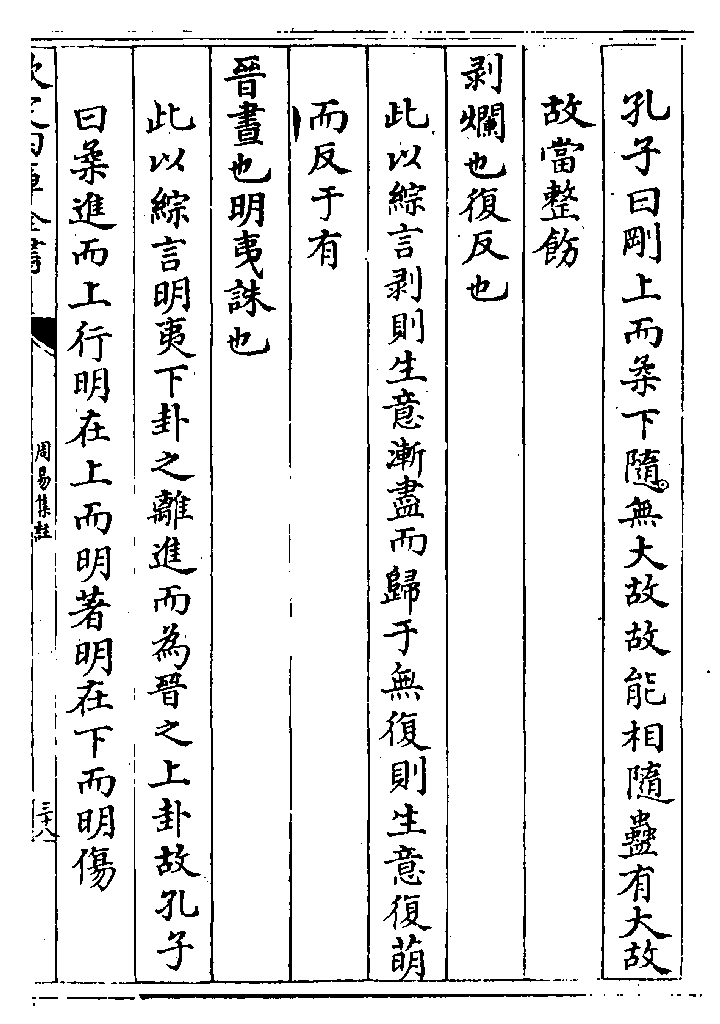 孔子曰剛上而柔下隨無大故故能相隨蠱有大故
故當整飭
剥爛也復反也
此以綜言剥則生意漸盡而歸于無復則生意復萌
而反于有
晉晝也明夷誅也
此以綜言明夷下卦之離進而為晉之上卦故孔子
曰柔進而上行明在上而明著明在下而明傷
周易集註
三十八